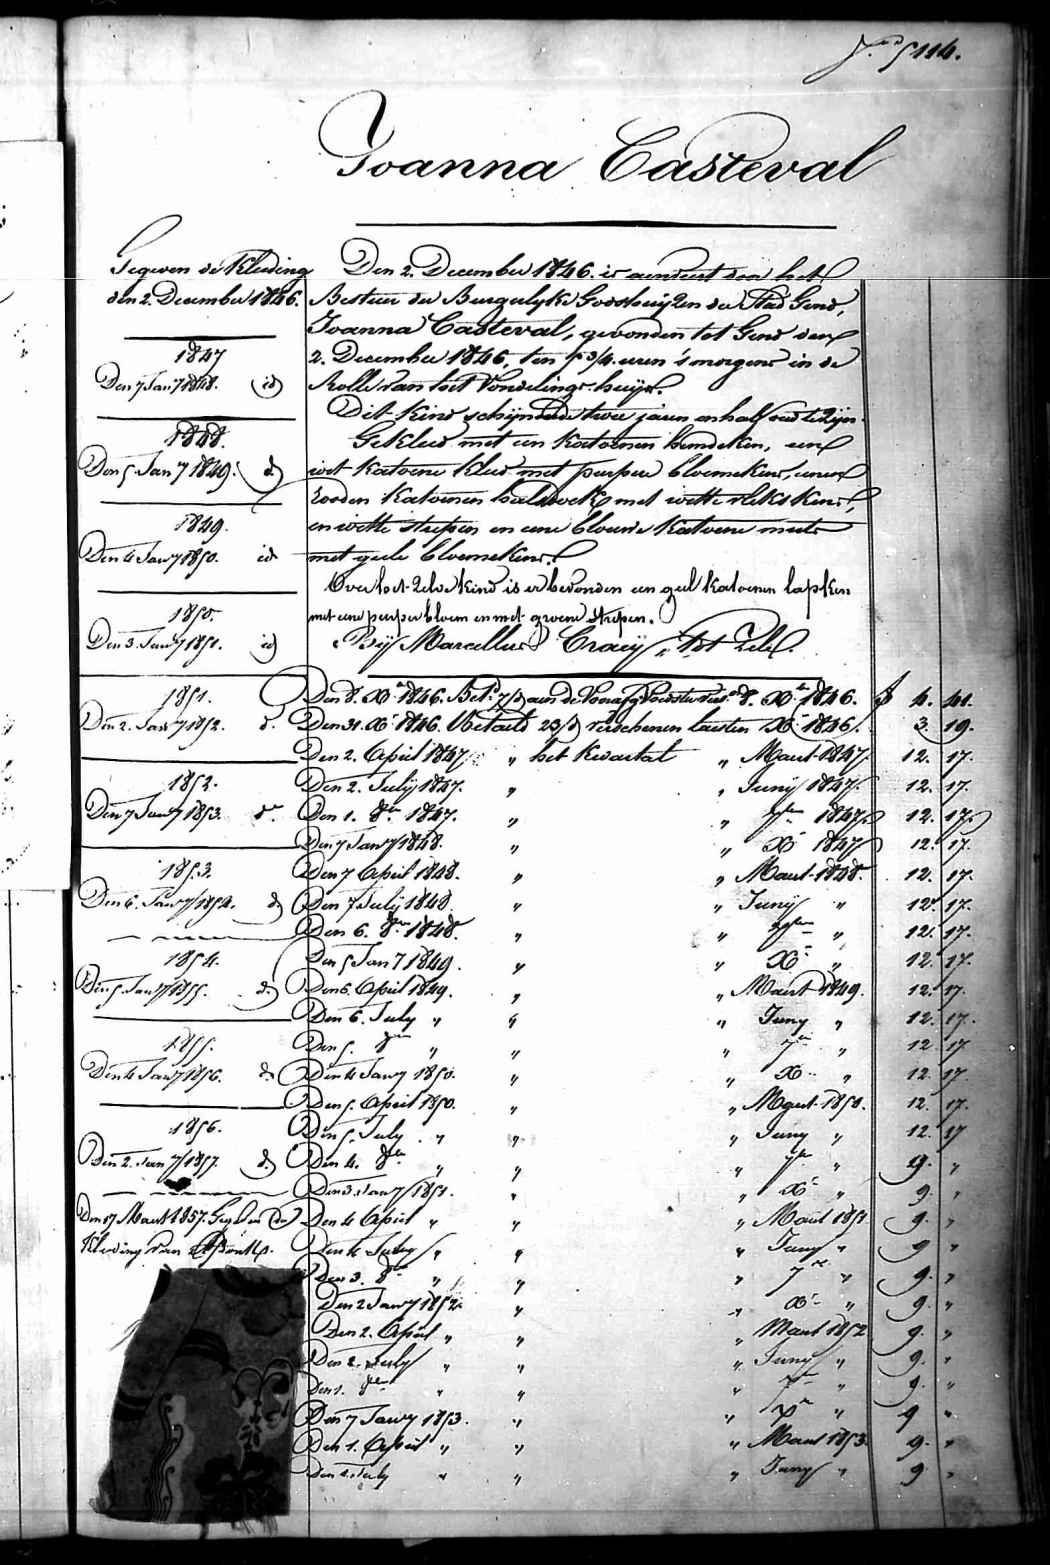 5114.
Joanna Casteval
Gegeven de Kleeding
den 2. December 1846.
1847
Den 7 Jan^y 1848. id
1848.
Den 5 Jan^y 1849. d^o
1849.
Den 4 Jan^y 1850. id
1850.
Den 3. Jan^y 1851. id
1851.
Den 2. Jan^y 1852. d^o
1852.
Den 7 Jan^y 1853. d^o
1853.
Den 6. Jan^y 1854. d^o
1854.
Den 5. Jan^y 1855. d^o
1855.
Den 4 Jan^y 1856. d^o
1856.
Den 2. Jan^y 1857. d^o
Den 17 Maart 1857. Gegeven de
Kleeding van
Den 2. December 1846. is aenveert door het
Bestuer der Burgerlyke Godshuyzen der Stad Gend,
Joanna Casteval, gevonden tot Gend den
2. December 1846, ten 7 3/4 uren 's morgens in de
Rolle van het Vondelings-huys.
Dit kind schynende twee jaeren en half oud te zyn
Gekleed met een katoenen hemdeken, een
wit katoene kleed met purpere bloemekens, eenen
rooden katoenen halsdoek met witte plekskens,
en witte strepen en eene blouwe katoene muts
met geele bloemekens.
Over het zelve kind is er bevonden een geel katoenen lapken
met eene purper bloem en met groene strepen.
Bij Marcellus Craeij, tot Zele.
Den 8. X^r 1846. Bet^d 7/ aen de Voedster 8. X^r 1846. f 4. 41.
Den 31. X^r 1846. Betaeld 23/ verschenen laesten X^r 1846. 3. 19.
Den 2. April 1847 " het Kwartael " Maert 1847. 12. 17.
Den 2. July 1847. " " Juny 1847. 12. 17.
Den 1. 8^br 1847. " " 7^br 1847. 12. 17.
Den 7 Jan^y 1848. " " X^r 1847 12. 17.
Den 7 April 1848. " " Maert 1848. 12. 17.
Den 7 July 1848. " " Juny " 12. 17.
Den 6. 8^br 1848. " " 7^br " 12. 17.
Den 5 Jan^y 1849. " " X^r " 12. 17.
Den 6. April 1849. " " Maert 1849. 12. 17.
Den 6. July " " " Juny " 12. 17.
Den 5. 8^br " " " 7^br " 12 17
Den 4 Jan^y 1850. " " X^r " 12. 17.
Den 5. April 1850. " " Maert 1850. 12. 17.
Den 5. July " " " Juny " 12. 17
Den 4. 8^br " " " 7^br " 9. "
Den 3. Jan^y 1851. " " X^r " 9. "
Den 4 April " " " Maert 1851 9. "
Den 4 July " " " Juny " 9 "
Den 3. 8^br " " " 7^br " 9. "
Den 2 Jan^y 1852. " " X^r " 9. "
Den 2. April " " " Maert 1852 9. "
Den 2. July " " " Juny " 9. "
Den 1. 8^br " " " 7^br " 9. "
Den 7 Jan^y 1853. " " X^r " 9 "
Den 1. April " " " Maert 1853. 9. "
Den 1. July " " " Juny " 9 "